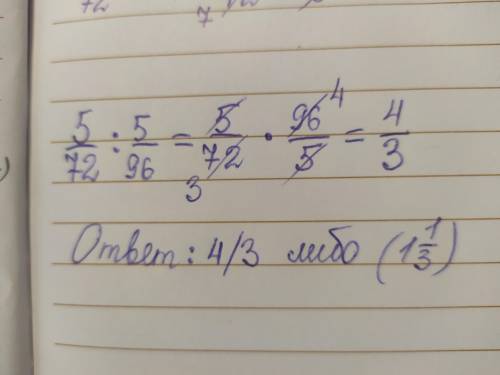 5/72 : 5/96 = 5/72 · 96/5 = 4/3
3 4
Ответ: 4/3 либо (1 1/3)